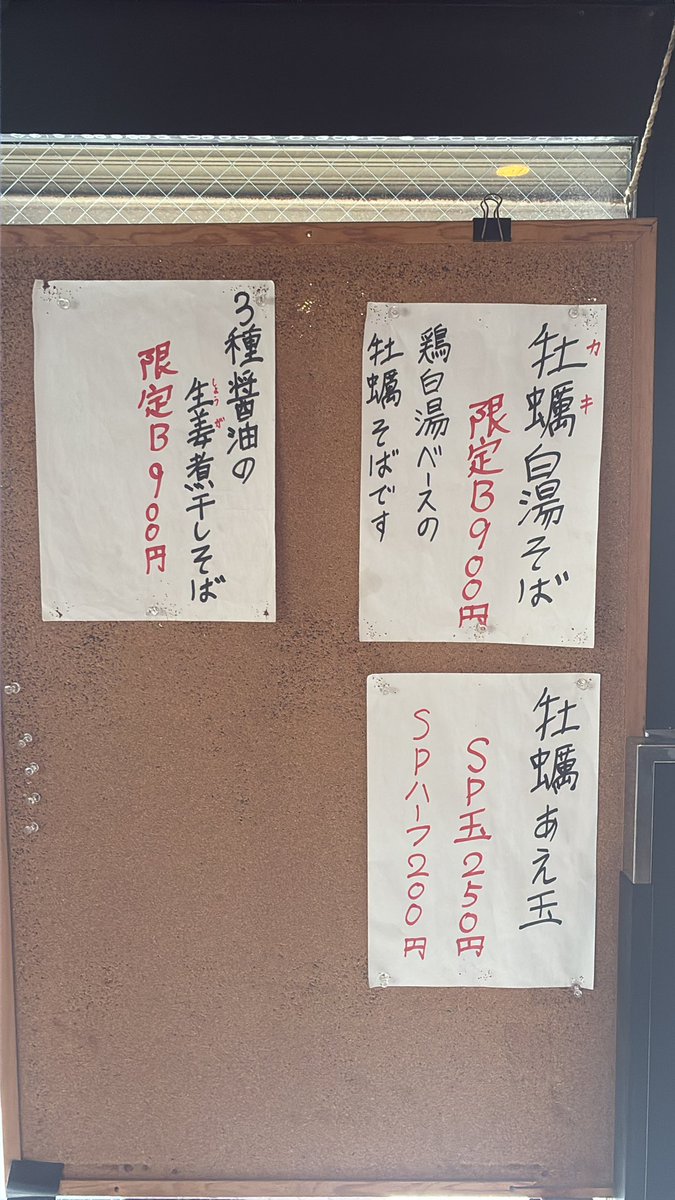 牡蠣白湯そば
カキ
限定B900円
鶏白湯ベースの
牡蠣そばです
牡蠣あえ玉
SP玉250円
SPハーフ200円
3種醤油の
生姜煮干しそば
しょうが
限定B900円